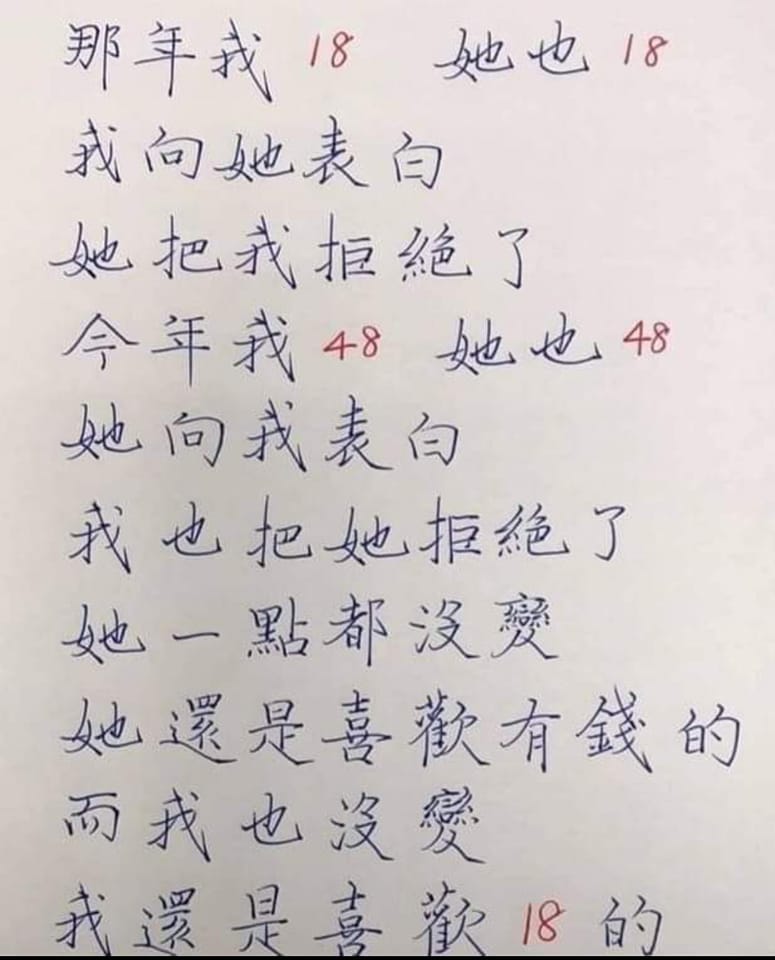 那年我 18 她也 18
我向她表白
她把我拒絕了
今年我 48 她也 48
她向我表白
我也把她拒絕了
她一點都沒變
她還是喜歡有錢的
而我也沒變
我還是喜歡 18 的